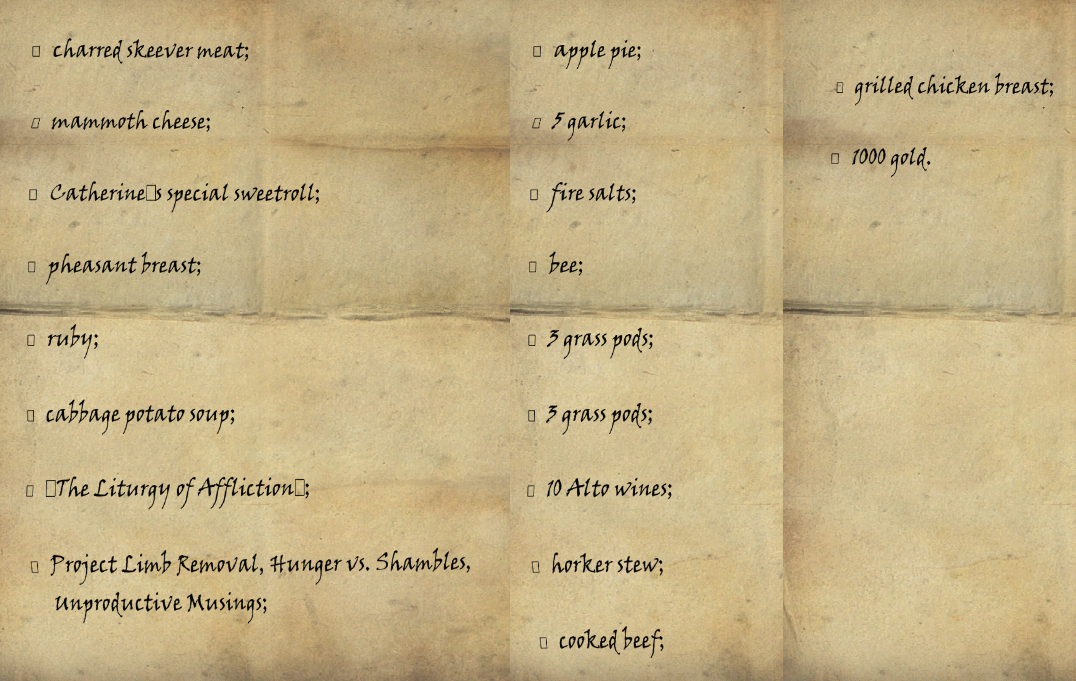 ▯ charred skeever meat;
▯ mammoth cheese;
▯ Catherine▯s special sweetroll;
▯ pheasant breast;
▯ ruby;
▯ cabbage potato soup;
▯ ▯The Liturgy of Affliction▯;
▯ Project Limb Removal, Hunger vs. Shambles,
Unproductive Musings;
▯ apple pie;
▯ 5 garlic;
▯ fire salts;
▯ bee;
▯ 3 grass pods;
▯ 3 grass pods;
▯ 10 Alto wines;
▯ horker stew;
▯ cooked beef;
▯ grilled chicken breast;
▯ 1000 gold.